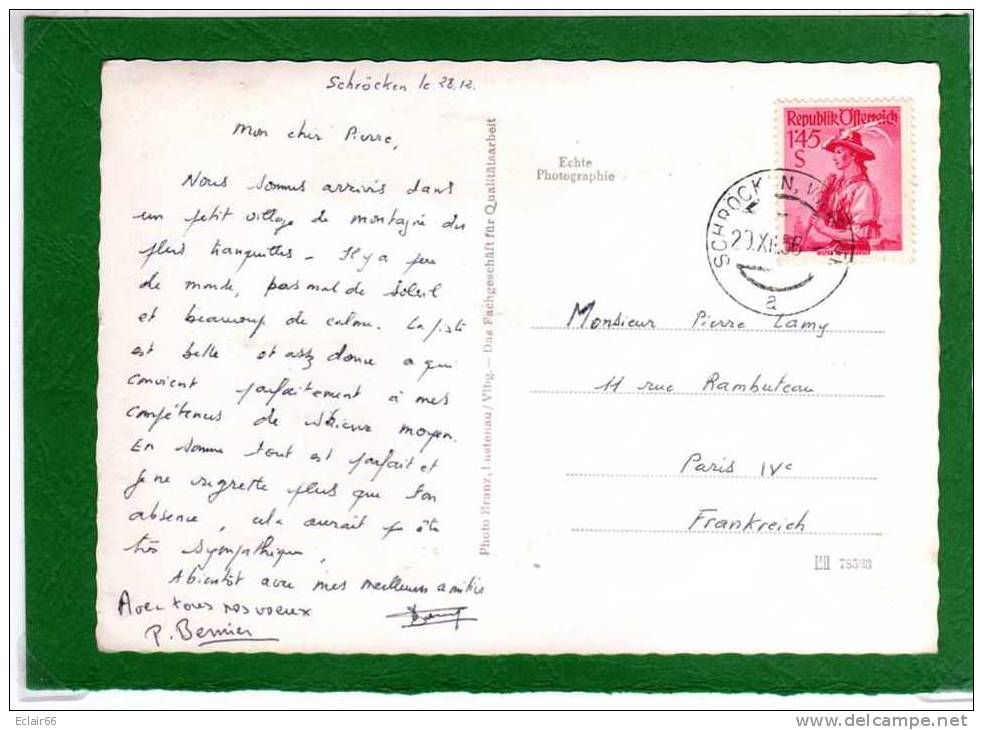 Schröcken le 28.12.
Mon cher Pierre,
Nous sommes arrivés dans
un petit village de montagne des
plus tranquilles. Il y a peu
de monde, pas mal de soleil
et beaucoup de calme. La piste
est belle et assez douce ce qui
convient parfaitement à mes
compétences de skieur moyen.
En somme tout est parfait et
je ne regrette plus que ton
absence, cela aurait pu être
très sympathique.
A bientôt avec mes meilleures amitiés
Avec tous nos voeux
P. Bernier
Photo Branz, Lustenau/Vlbg. — Das Fachgeschäft für Qualitätsarbeit
Echte
Photographie
Republik Österreich
1'45
S
SCHRÖCKEN,
29.XII.56
a
Monsieur Pierre Lamy
11 rue Rambuteau
Paris IVe
Frankreich
Eclair66
www.delcampe.net